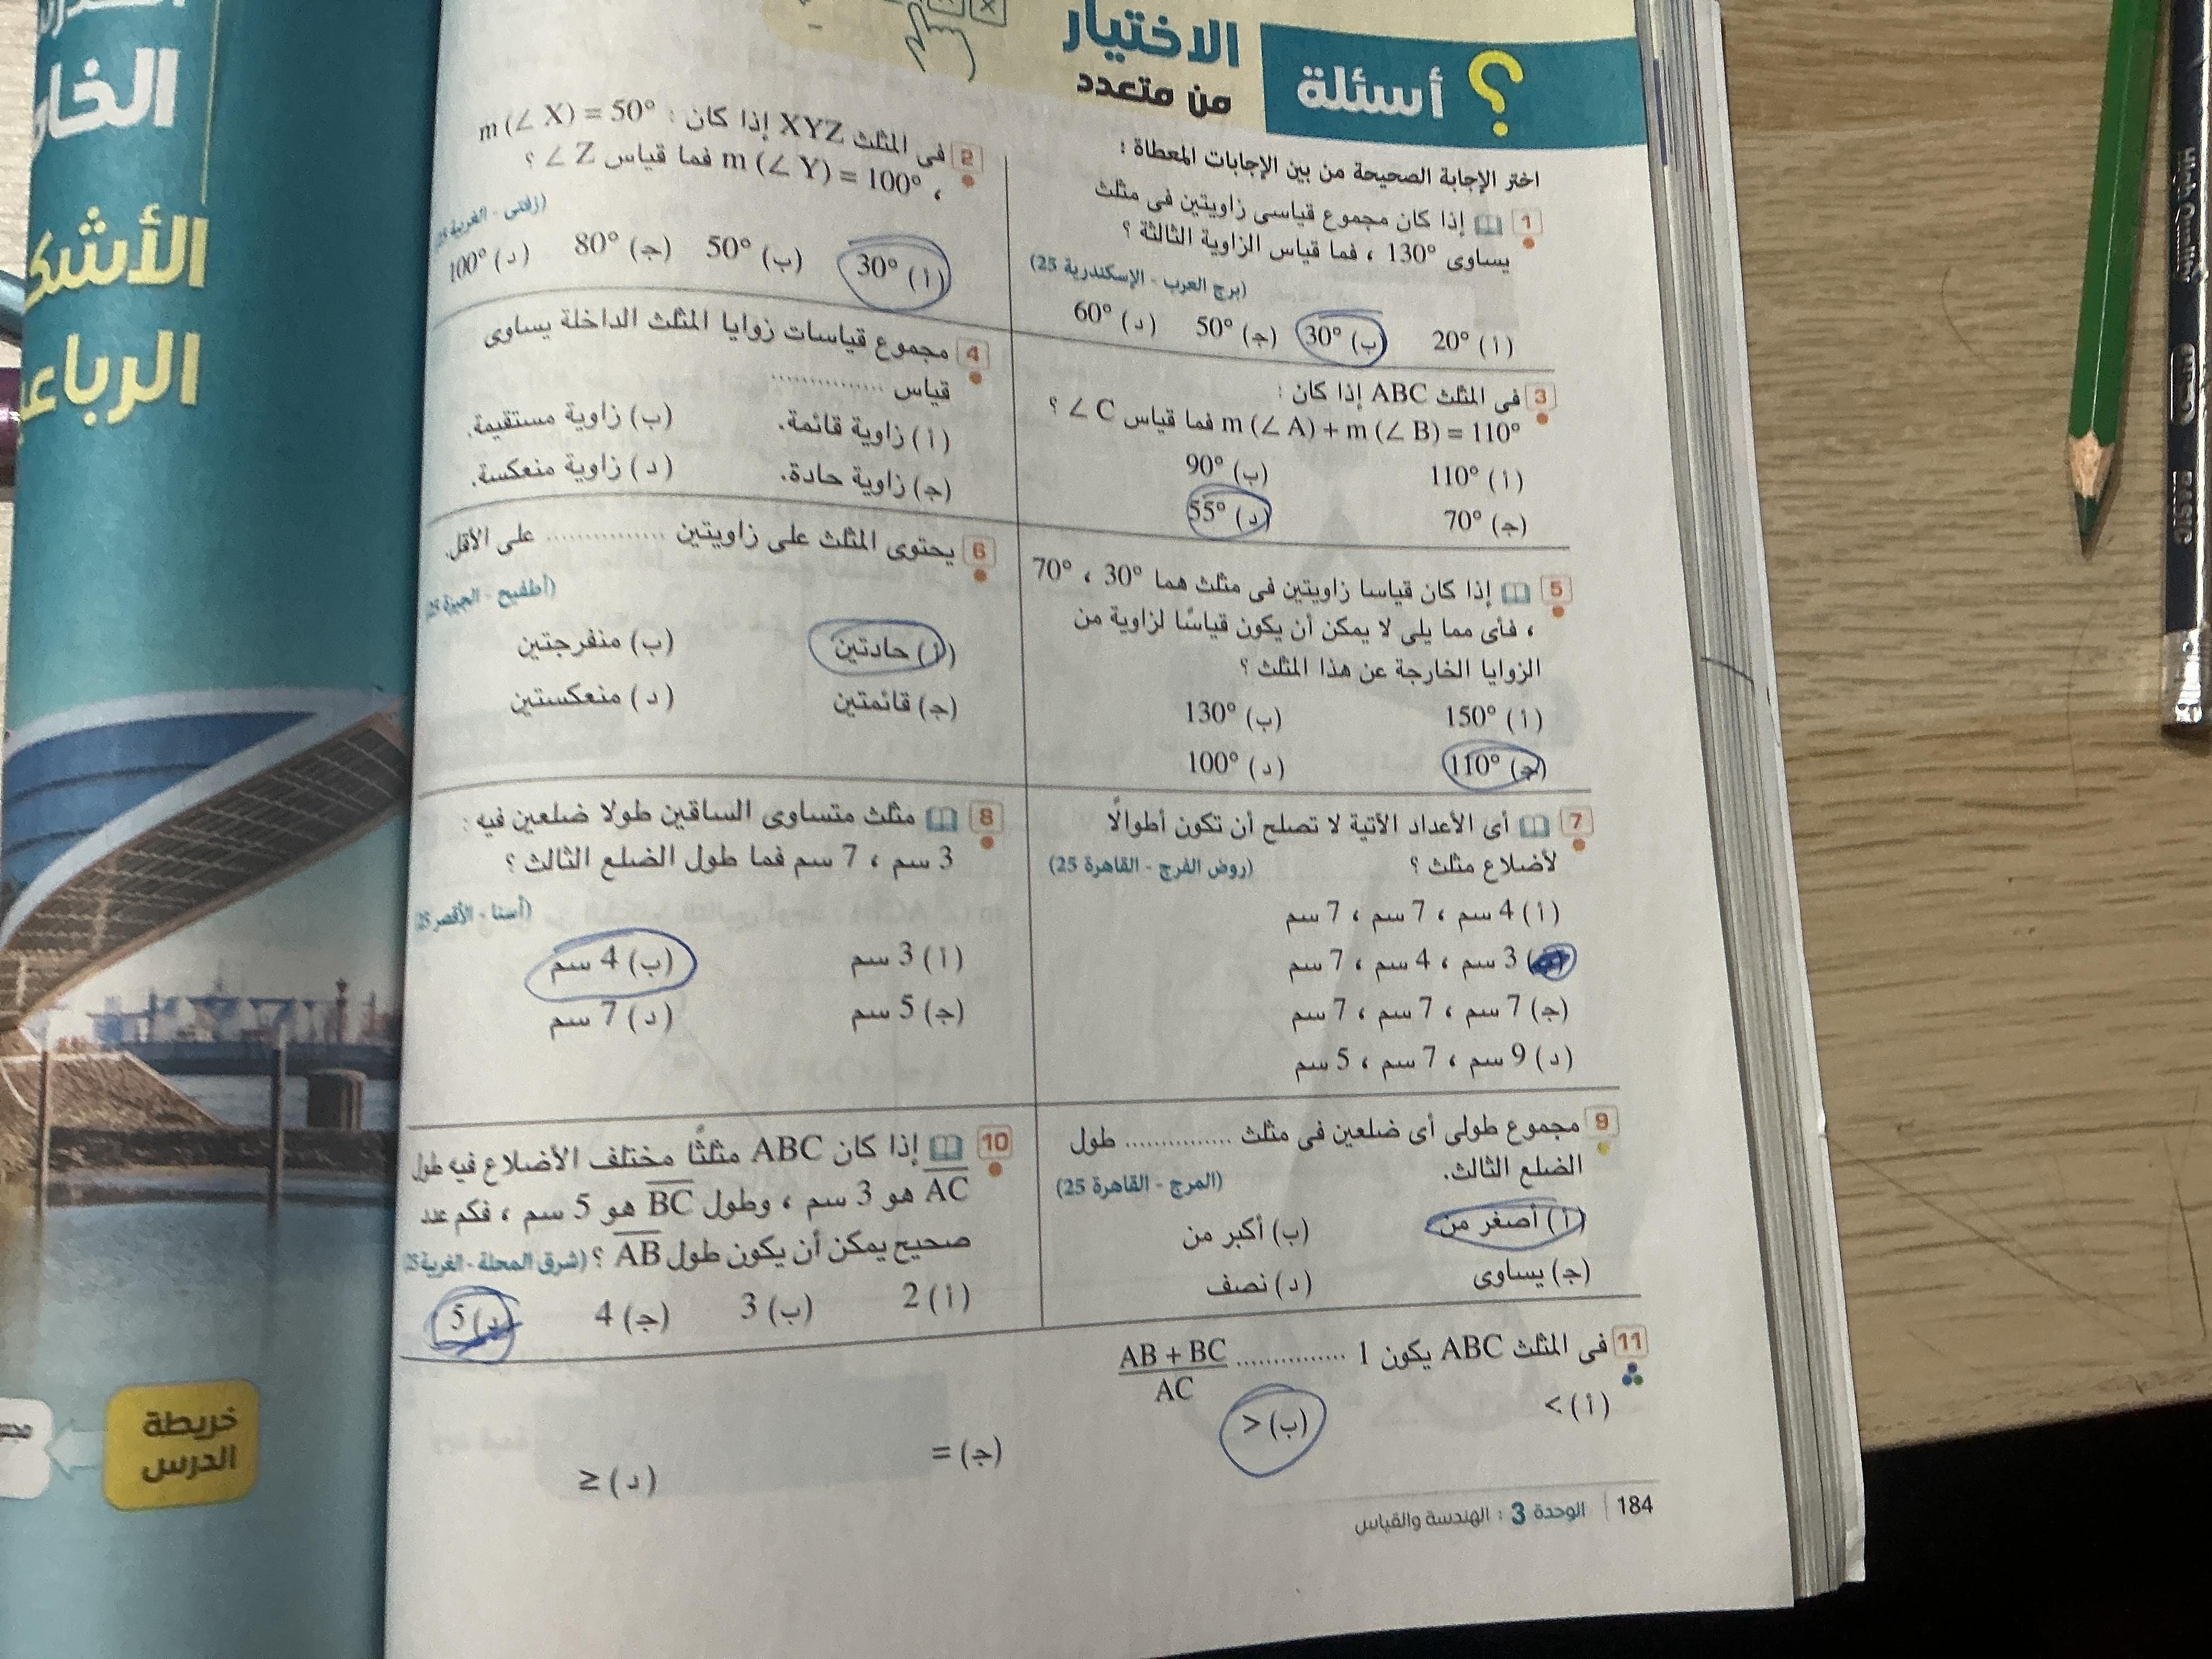 الخار
الأشك
الرباعي
خريطة
الدرس
؟ أسئلة
الاختيار
من متعدد
اختر الإجابة الصحيحة من بين الإجابات المعطاة :
1 إذا كان مجموع قياسى زاويتين فى مثلث
يساوى 130° ، فما قياس الزاوية الثالثة ؟
(برج العرب - الإسكندرية 25)
(أ) 20° (ب) 30° (ج) 50° (د) 60°
2 فى المثلث XYZ إذا كان : m (∠ X) = 50°
، m (∠ Y) = 100° فما قياس ∠ Z ؟
(زفتى - الغربية 25)
(أ) 30° (ب) 50° (ج) 80° (د) 100°
3 فى المثلث ABC إذا كان :
m (∠ A) + m (∠ B) = 110° فما قياس ∠ C ؟
(أ) 110° (ب) 90°
(ج) 70° (د) 55°
4 مجموع قياسات زوايا المثلث الداخلة يساوى
قياس ...............
(أ) زاوية قائمة. (ب) زاوية مستقيمة.
(ج) زاوية حادة. (د) زاوية منعكسة.
5 إذا كان قياسا زاويتين فى مثلث هما 30° ، 70°
، فأى مما يلى لا يمكن أن يكون قياسًا لزاوية من
الزوايا الخارجة عن هذا المثلث ؟
(أ) 150° (ب) 130°
(ج) 110° (د) 100°
6 يحتوى المثلث على زاويتين ............... على الأقل.
(أطفيح - الجيزة 25)
(أ) حادتين (ب) منفرجتين
(ج) قائمتين (د) منعكستين
7 أى الأعداد الآتية لا تصلح أن تكون أطوالًا
لأضلاع مثلث ؟ (روض الفرج - القاهرة 25)
(أ) 4 سم ، 7 سم ، 7 سم
3 سم ، 4 سم ، 7 سم
(ج) 7 سم ، 7 سم ، 7 سم
(د) 9 سم ، 7 سم ، 5 سم
8 مثلث متساوى الساقين طولا ضلعين فيه :
3 سم ، 7 سم فما طول الضلع الثالث ؟
(أسنا - الأقصر 25)
(أ) 3 سم (ب) 4 سم
(ج) 5 سم (د) 7 سم
9 مجموع طولى أى ضلعين فى مثلث ............... طول
الضلع الثالث. (المرج - القاهرة 25)
(أ) أصغر من (ب) أكبر من
(ج) يساوى (د) نصف
10 إذا كان ABC مثلثًا مختلف الأضلاع فيه طول
AC هو 3 سم ، وطول BC هو 5 سم ، فكم عدد
صحيح يمكن أن يكون طول AB ؟ (شرق المحلة - الغربية 25)
(أ) 2 (ب) 3 (ج) 4 (د) 5
11 فى المثلث ABC يكون 1 ............... AB + BC / AC
(أ) > (ب) < (ج) = (د) ≤
184 الوحدة 3 : الهندسة والقياس